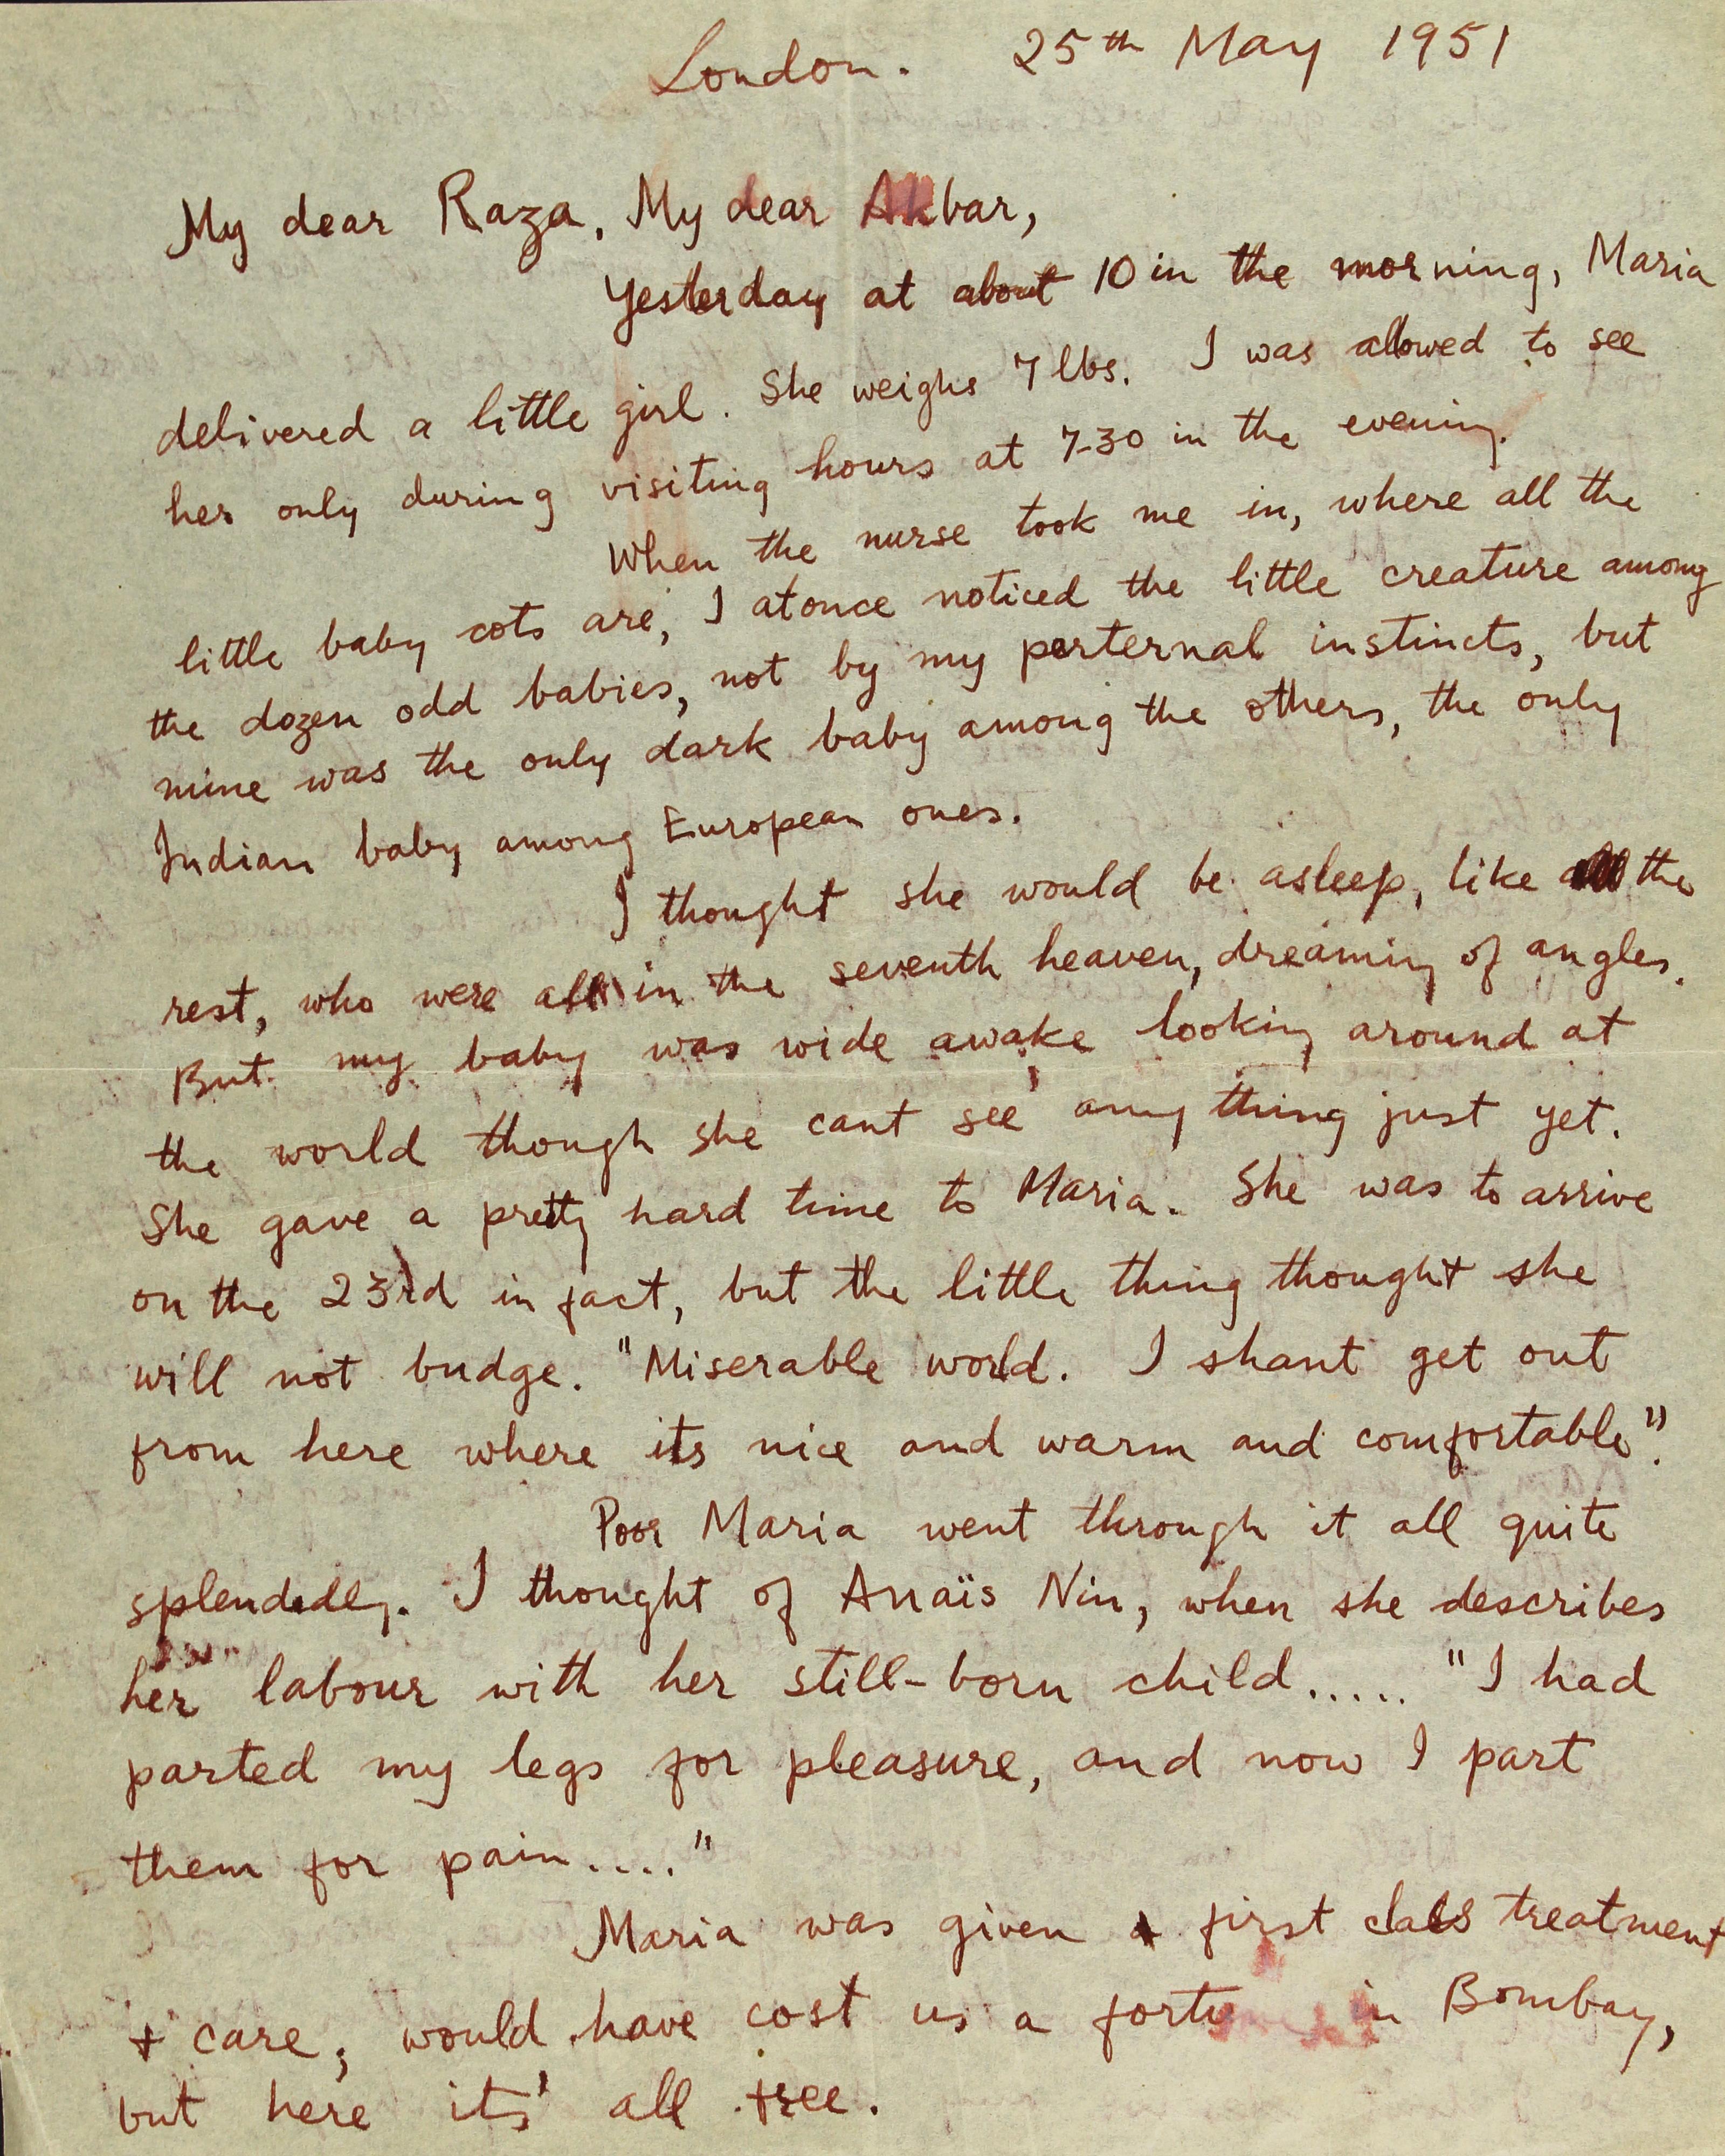 London. 25th May 1951
My dear Raza, My dear Akbar,
Yesterday at about 10 in the morning, Maria
delivered a little girl. She weighs 7 lbs. I was allowed to see
her only during visiting hours at 7-30 in the evening.
When the nurse took me in, where all the
little baby cots are, I atonce noticed the little creature among
the dozen odd babies, not by my perternal instincts, but
mine was the only dark baby among the others, the only
Indian baby among European ones.
I thought she would be asleep, like the
rest, who were all in the seventh heaven, dreaming of angles.
But my baby was wide awake looking around at
the world though she cant see any thing just yet.
She gave a pretty hard time to Maria. She was to arrive
on the 23rd in fact, but the little thing thought she
will not budge. "Miserable world. I shant get out
from here where its nice and warm and comfortable".
Poor Maria went through it all quite
splendedly. I thought of Anaïs Nin, when she describes
her labour with her still-born child..... "I had
parted my legs for pleasure, and now I part
them for pain...."
Maria was given a first class treatment
+ care, would have cost us a in Bombay,
but here its' all free.